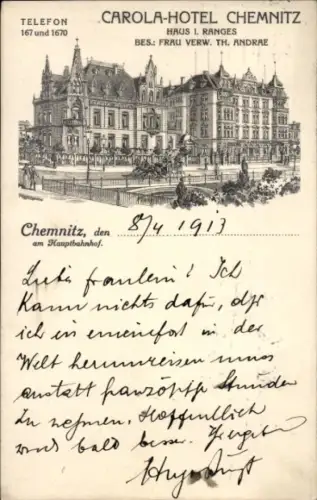 TELEFON
167 und 1670
CAROLA-HOTEL CHEMNITZ
HAUS I. RANGES
BES.: FRAU VERW. TH. ANDRAE
Chemnitz, den 8/4 1913
am Hauptbahnhof.
fraulein! Ich
kann nichts dafür, dss
ich in einemfort in der
Welt herumreisen muss
anstatt Stunden
zu nehmen. Hoffentlich
wird bald besser.